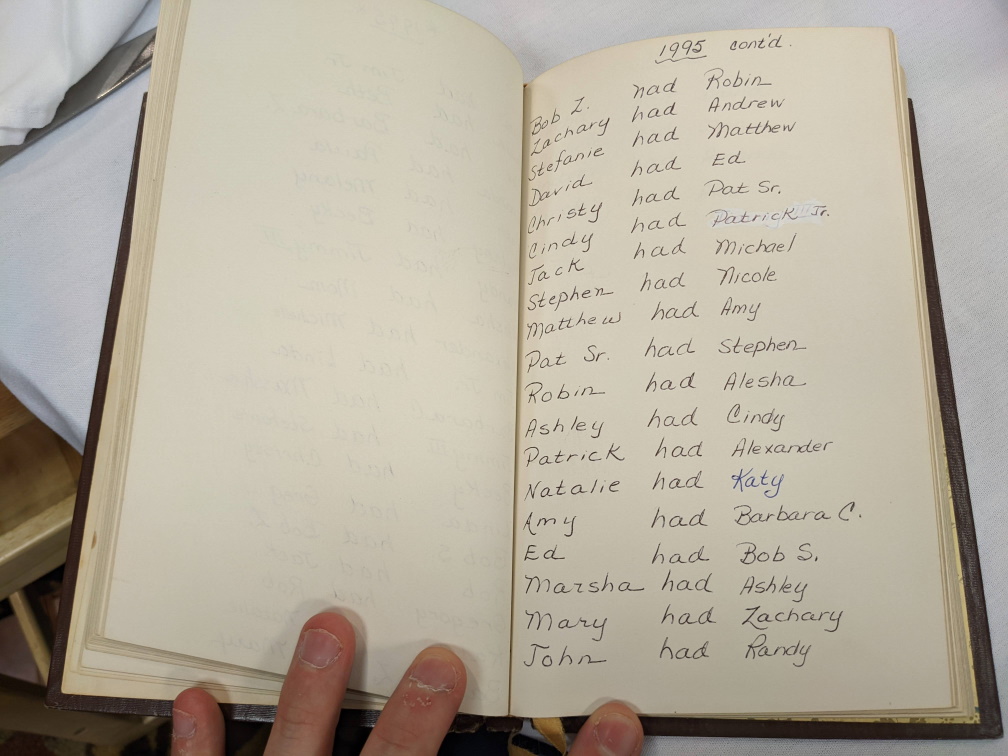 1995 cont'd.
Bob Z. had Robin
Zachary had Andrew
Stefanie had Matthew
David had Ed
Christy had Pat Sr.
Cindy had Patrick Jr.
Jack had Michael
Stephen had Nicole
Matthew had Amy
Pat Sr. had Stephen
Robin had Alesha
Ashley had Cindy
Patrick had Alexander
Natalie had Katy
Amy had Barbara C.
Ed had Bob S.
Marsha had Ashley
Mary had Zachary
John had Randy